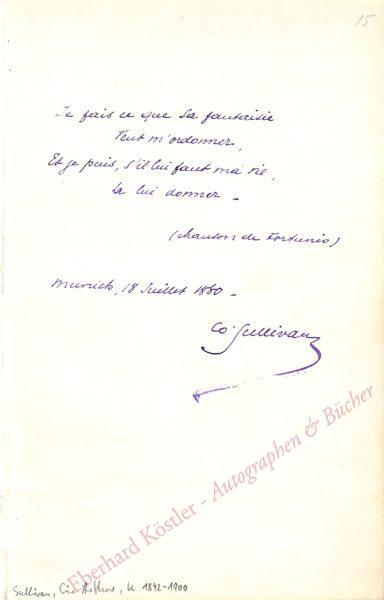 15
Je fais ce que sa fantaisie
Veut m'ordonner,
Et je puis, s'il lui faut ma vie,
La lui donner -
(Chanson de Fortunio)
Munich, 18 Juillet 1880 -
Co. Sullivan
Eberhard Köstler - Autographen & Bücher
Sullivan, Sir Arthur, K 1842-1900